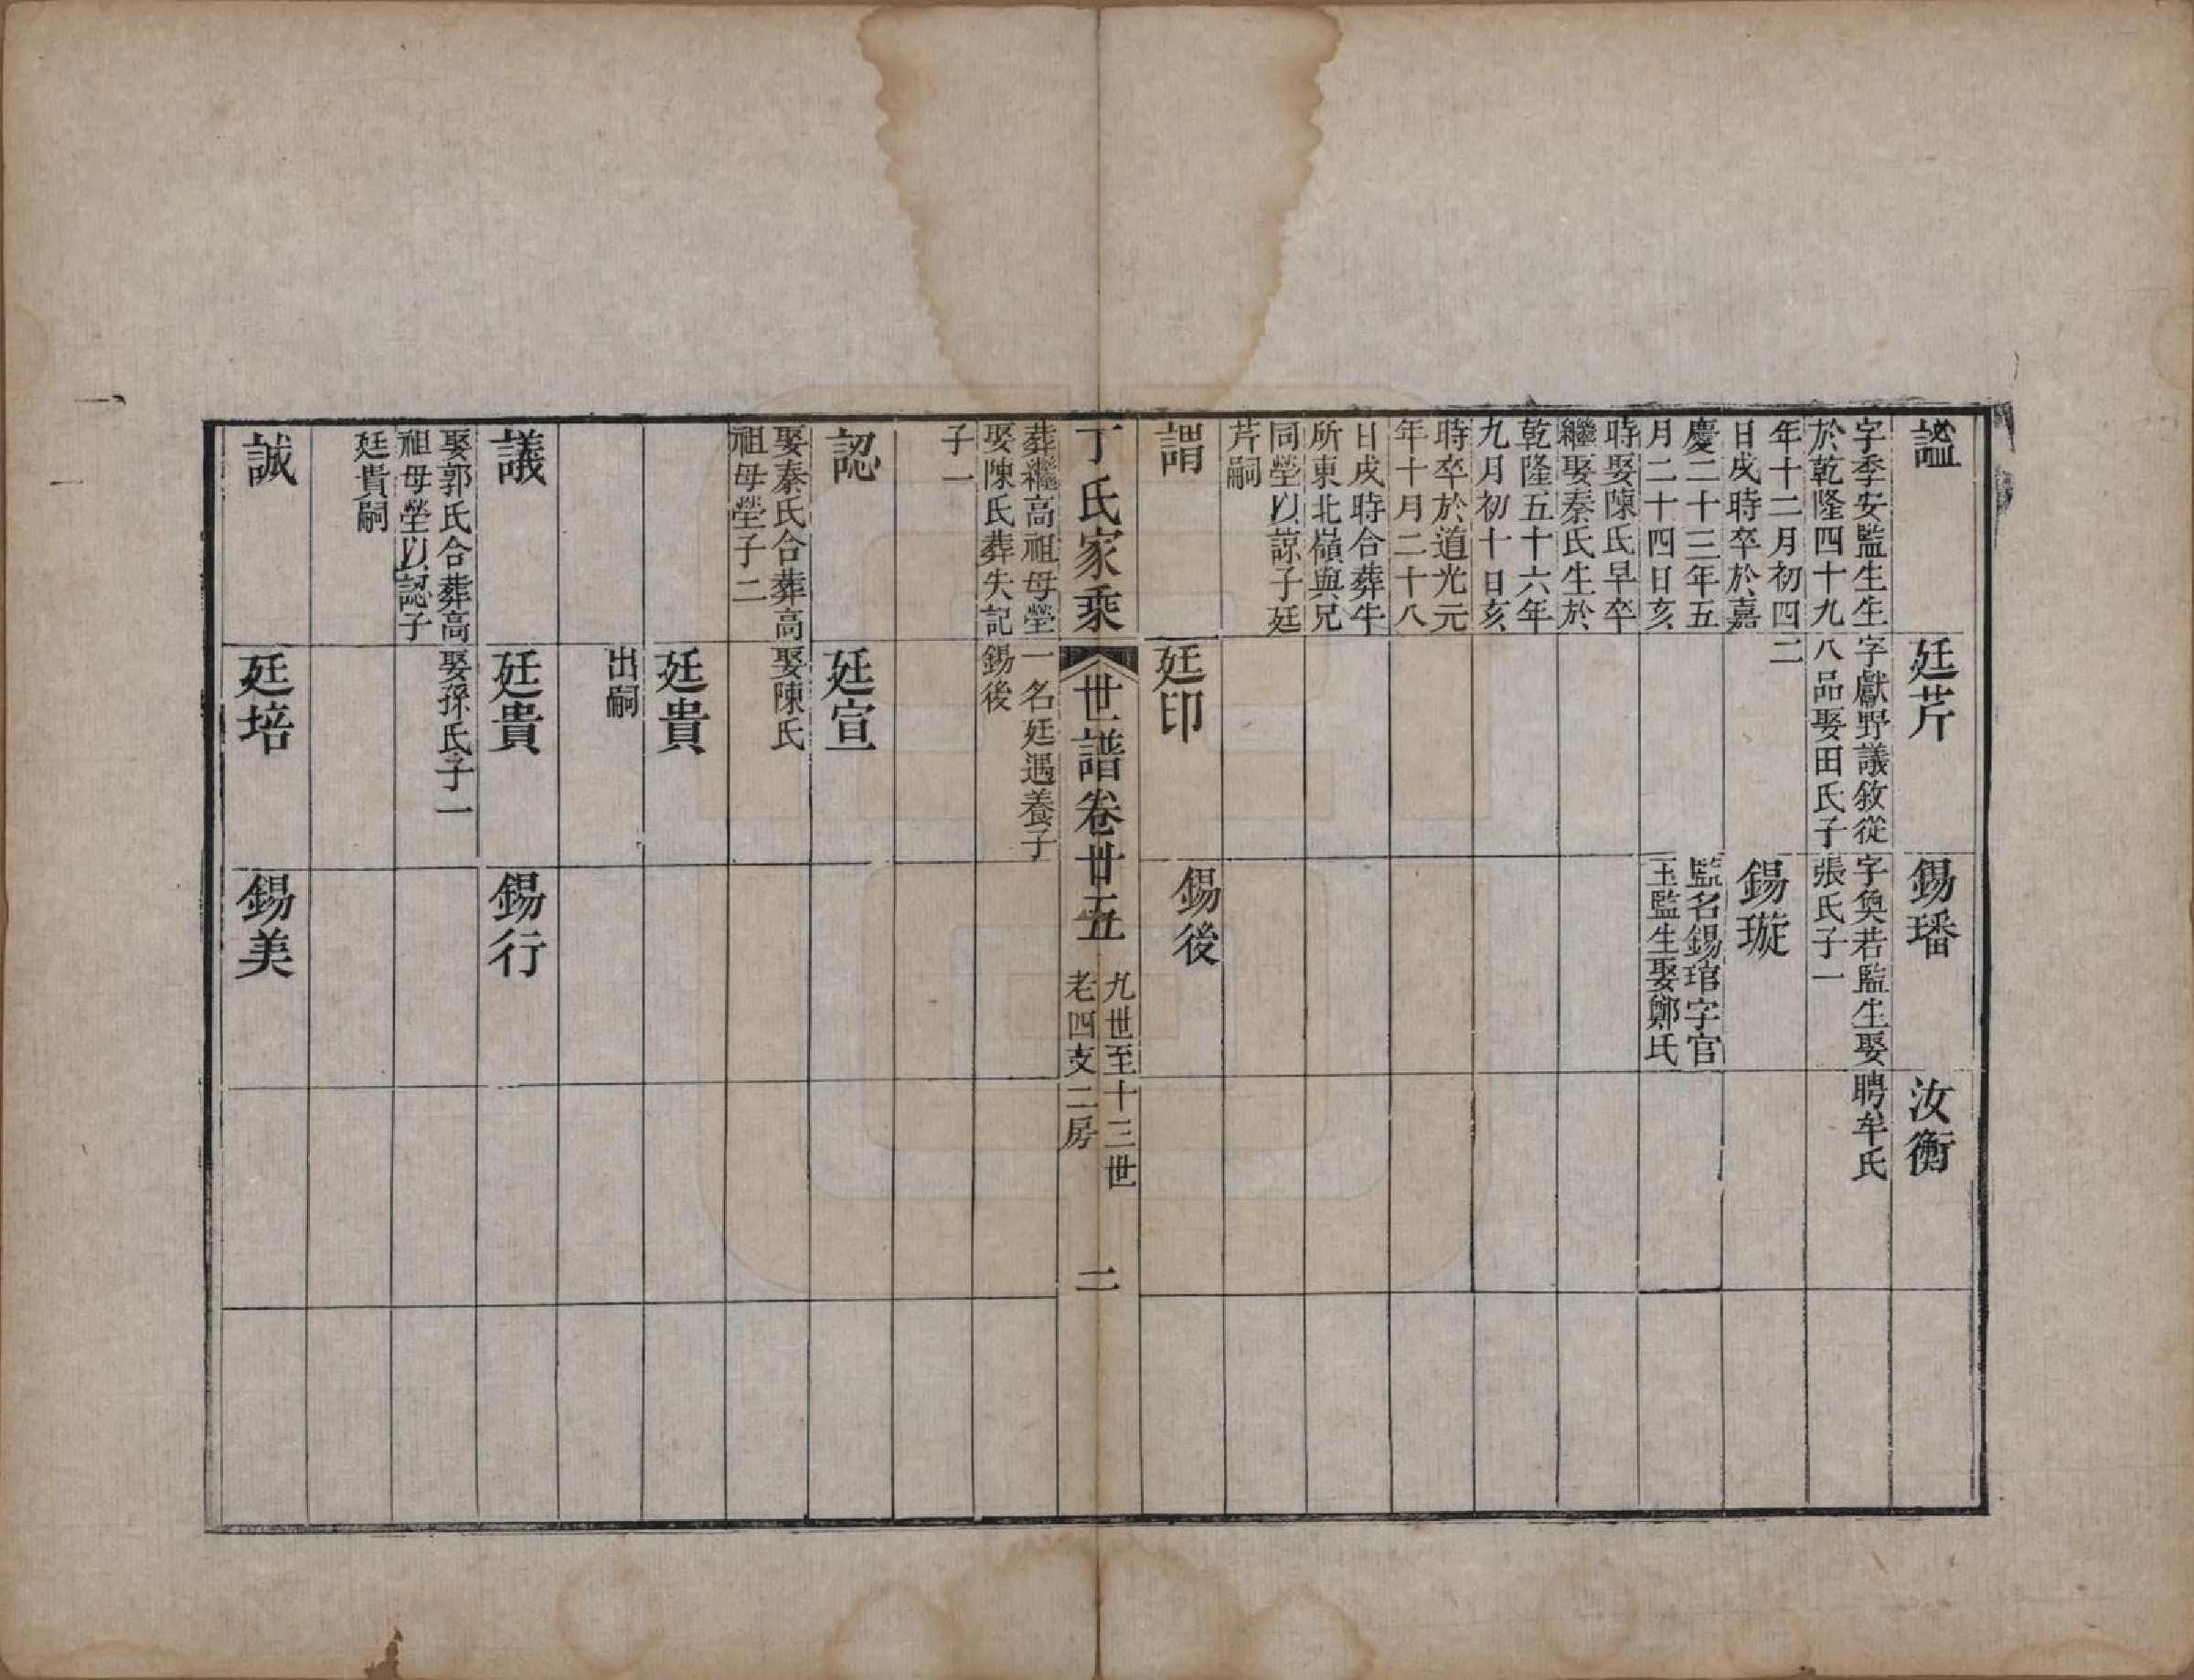 謐
字季安監生生
於乾隆四十九
年十二月初四
日戌時卒於嘉
慶二十三年五
月二十四日亥
時娶陳氏早卒
繼娶秦氏生於
乾隆五十六年
九月初十日亥
時卒於道光元
年十月二十八
日戌時合葬牛
所東北嶺與兄
同塋以諒子廷
芹嗣
廷芹
字獻野議敘從
八品娶田氏子
二
錫璠
字奐若監生娶
張氏子一
錫璇
監名錫琯字官
玉監生娶鄭氏
汝衡
聘牟氏
謂
廷印
錫後
丁氏家乘
世譜卷廿五
九世至十三世
老四支二房
二
葬繼高祖母塋
娶陳氏葬失記
子一
一名廷遇養子
錫後
認
娶秦氏合葬高
祖母塋子二
廷宣
娶陳氏
廷貴
出嗣
議
娶郭氏合葬高
祖母塋以認子
廷貴嗣
廷貴
娶孫氏子一
錫行
誠
廷培
錫美